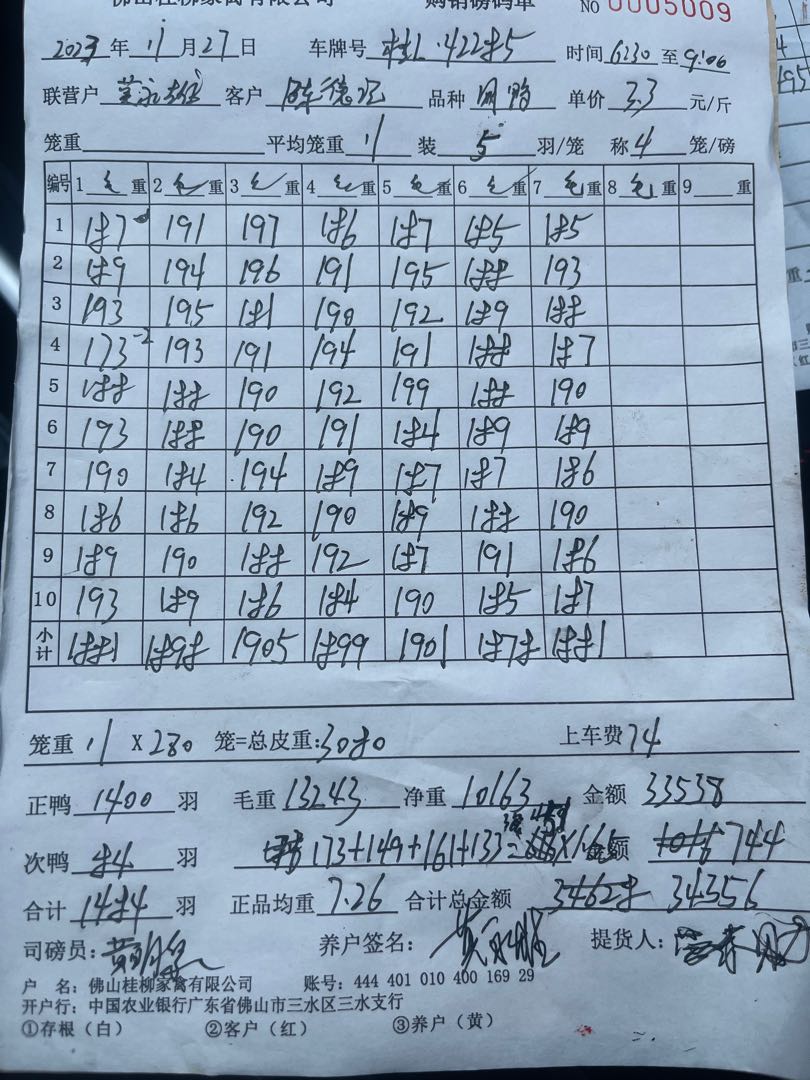 佛山桂柳家禽有限公司 购销磅码单 NO 0005009
2023年11月27日 车牌号 桂L·42285 时间 6:30 至 9:00
联营户 客户 陈德 品种 单价 3.3 元/斤
笼重 平均笼重 11 装 5 羽/笼 称 4 笼/磅
编号 1 毛 重 2 毛 重 3 毛 重 4 毛 重 5 毛 重 6 毛 重 7 毛 重 8 毛 重 9 重
1 187 191 197 186 187 185 185
2 189 194 196 191 195 188 193
3 193 195 181 190 192 189 188
4 173-2 193 191 194 191 188 187
5 188 188 190 192 199 188 190
6 193 188 190 191 184 189 189
7 190 184 194 189 187 187 186
8 186 186 192 190 189 188 190
9 189 190 188 192 187 191 186
10 193 189 186 184 190 185 187
小计 1881 1898 1905 1899 1901 1878 1881
笼重 11 X 280 笼=总皮重:3080 上车费 74
正鸭 1400 羽 毛重 13243 净重 10163 金额 33538
次鸭 84 羽 173+149+161+133= 451 X1.65 金额 744
合计 1484 羽 正品均重 7.26 合计总金额 34628 34356
司磅员: 养户签名: 提货人:
户 名: 佛山桂柳家禽有限公司 账号: 444 401 010 400 169 29
开户行: 中国农业银行广东省佛山市三水区三水支行
①存根(白) ②客户(红) ③养户(黄)